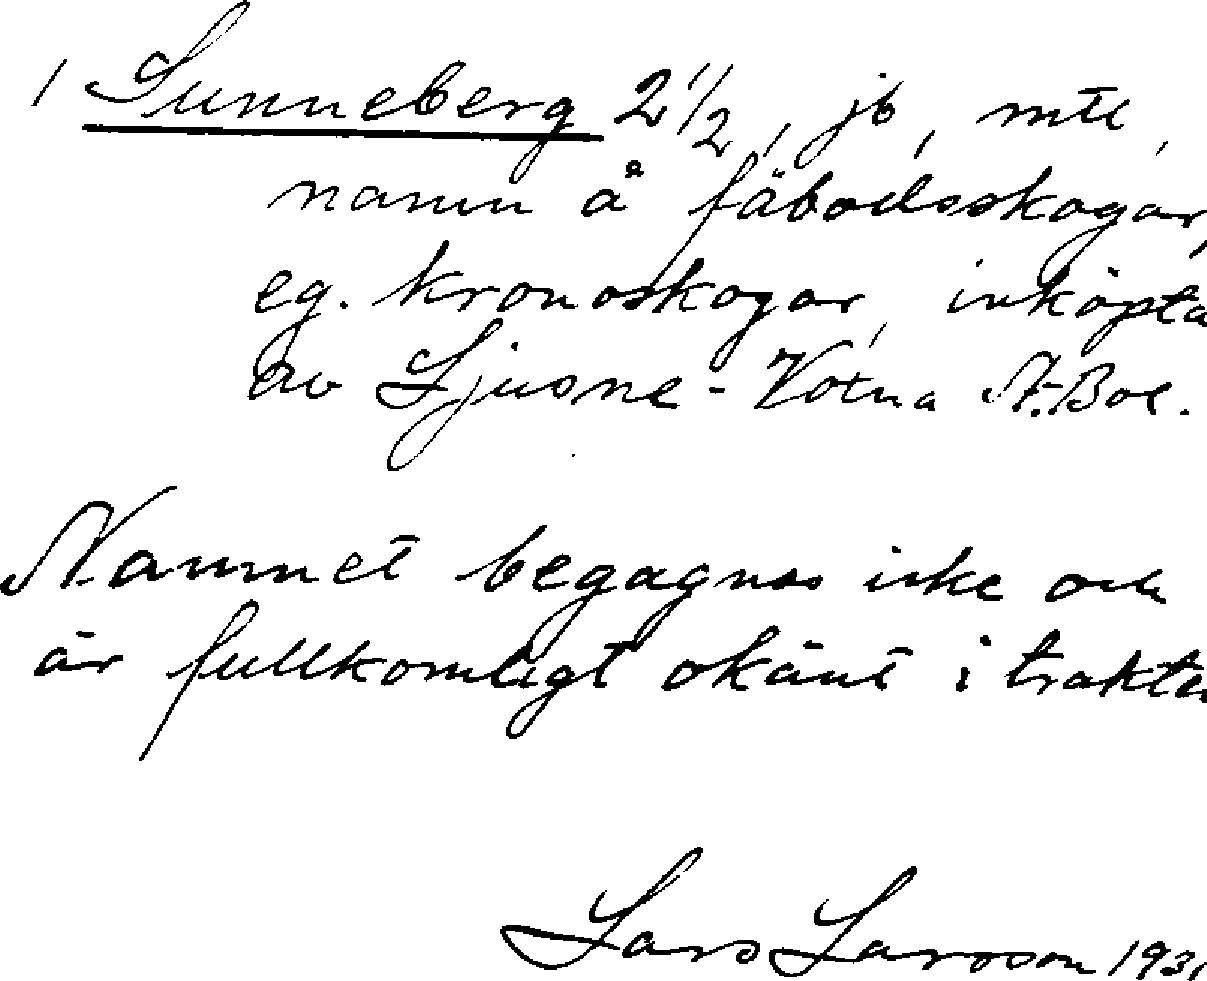 1 Sunneberg 2 1/2, jb, mtl,
namn å fäbodsskogar,
eg. kronoskogar, inköpta
av Ljusne-Voxna A.-Bol.
Namnet begagnas icke och
är fullkomligt okänt i trakte
Lars Larsson 1931